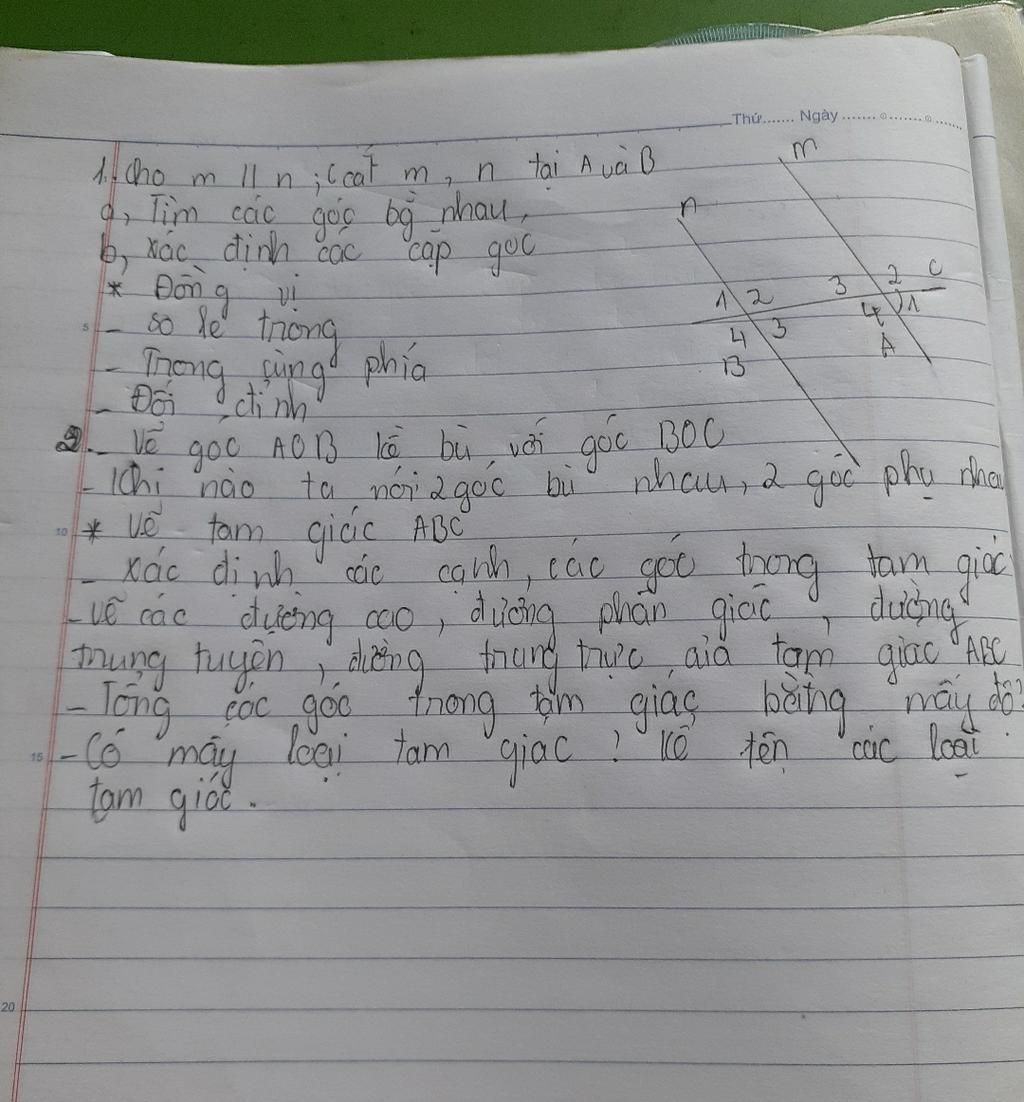 Thứ....... Ngày ....................
1. Cho m // n ; C cắt m, n tại A và B
a, Tìm các góc bù nhau,
b, xác định các cặp goc
* Đồng vị
5 - so le trong
- Trong cùng phía
- Đối đỉnh
m
n
1 2 3 2 C
4 3 4 1
B A
2. - Vẽ góc AOB kề bù với góc BOC
- Khi nào ta nói 2 góc bù nhau, 2 góc phụ nhau
10 * Vẽ tam giác ABC
- Xác định các cạnh, các góc trong tam giác
- Vẽ các đường cao, đường phân giác, đường
trung tuyên, đường trung trực của tam giac ABC
- Tổng các góc trong tam giác bằng mấy độ?
15 - Có mấy loại tam giac ? Kể tên các loại
tam giác.
20